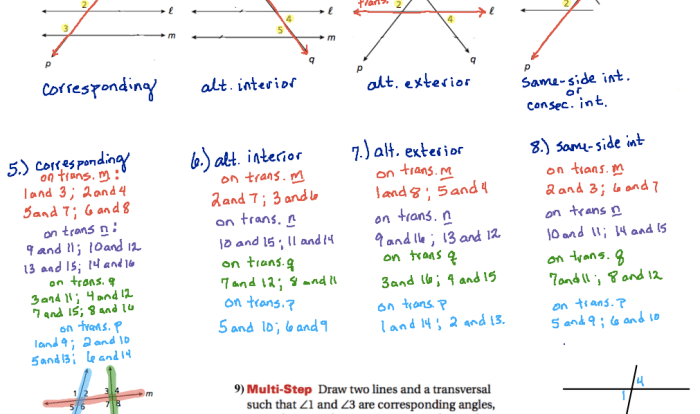 trans.
2
2
2
ℓ
ℓ
ℓ
4
4
3
5
m
m
p
q
p
q
p
corresponding
alt. interior
alt. exterior
same-side int.
or
consec. int.
5.) corresponding
on trans. m:
1 and 3; 2 and 4
5 and 7; 6 and 8
on trans n:
9 and 11; 10 and 12
13 and 15; 14 and 16
on trans. q
3 and 11; 4 and 12
7 and 15; 8 and 16
on trans. p
1 and 9; 2 and 10
5 and 13; 6 and 14
6.) alt. interior
on trans. m
2 and 7; 3 and 6
on trans. n
10 and 15; 11 and 14
on trans. q
7 and 12; 8 and 11
on trans. p
5 and 10; 6 and 9
7.) alt. exterior
on trans. m
1 and 8; 5 and 4
on trans. n
9 and 16; 13 and 12
on trans q
3 and 16; 4 and 15
on trans p
1 and 14; 2 and 13.
8.) same-side int
on trans. m
2 and 3; 6 and 7
on trans n
10 and 11; 14 and 15
on trans. q
7 and 11; 8 and 12
on trans. p
5 and 9; 6 and 10
1 2 3 4 m
5 6 7 8
9) Multi-Step Draw two lines and a transversal
such that ∠1 and ∠3 are corresponding angles,
4
1